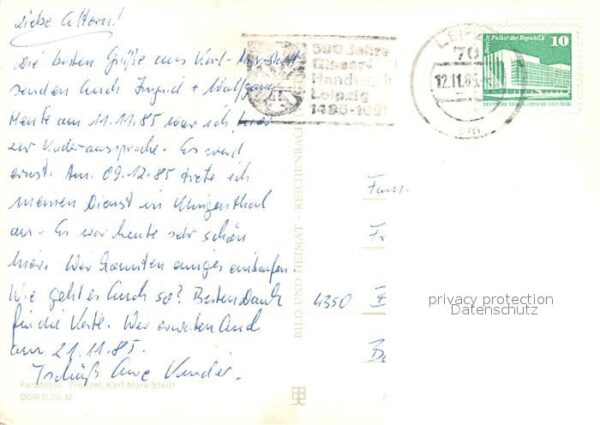 Liebe Eltern!
Die besten Grüße aus Karl-Mx-Stadt
senden Euch Ingrid + Wolfgang.
Heute am 11.11.85 war ich hier
zur Kaderaussprache. Es wird
ernst. Am 09.12.85 trete ich
meinen Dienst in Klingenthal
an. Es war heute sehr schön
hier. Wir konnten einiges einkaufen.
Wie geht es Euch so? Besten Dank
für die Karte. Wir erwarten Euch
am 21.11.85.
Tschüß Eure Kinder.
Farbfotos: Frenzel, Karl-Marx-Stadt
DDR 0,20 M
BILD UND HEIMAT · REICHENBACH
500 Jahre
Glaser-
Handwerk
Leipzig
LEIPZIG
70
12.11.85
Berlin, Palast der Republik
10
Fam.
4350
privacy protection
Datenschutz